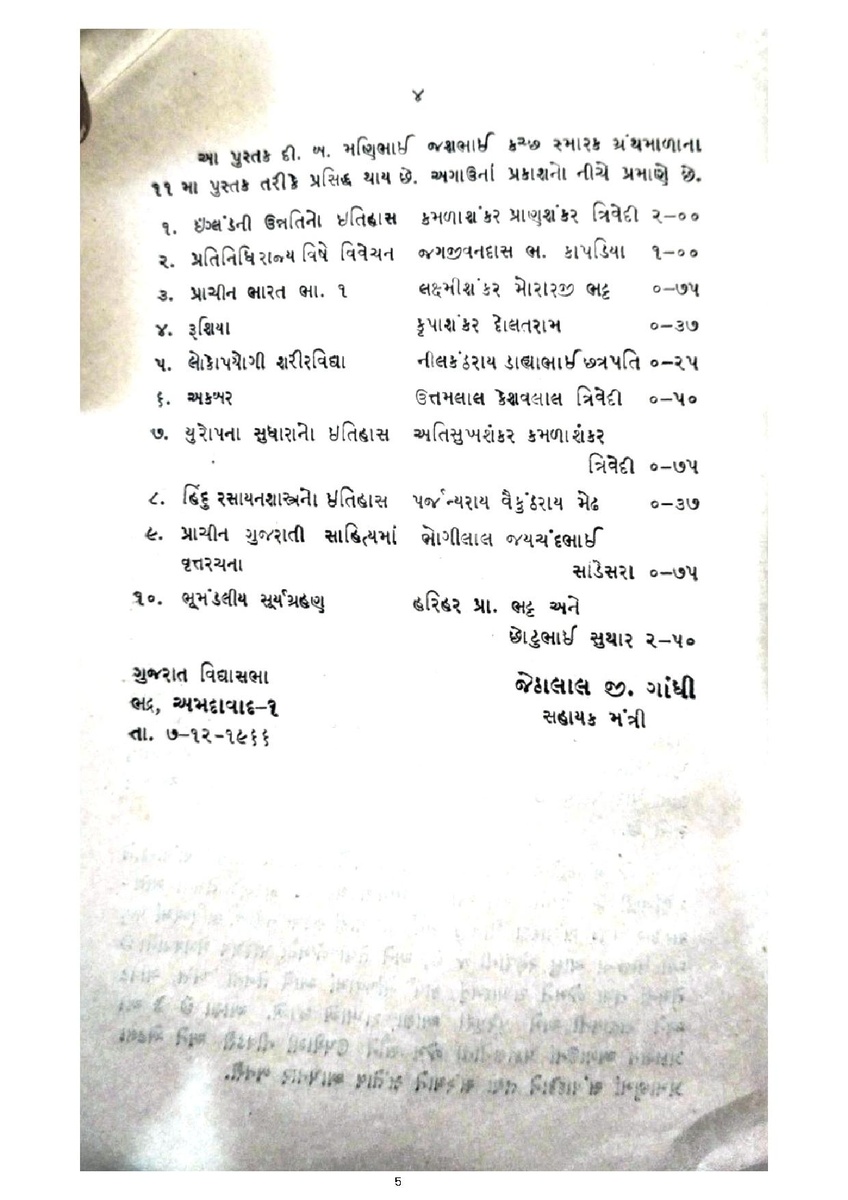 ૪
આ પુસ્તક દી. બ. મણિભાઈ જશભાઈ કચ્છ સ્મારક ગ્રંથમાળાના
૧૧ મા પુસ્તક તરીકે પ્રસિદ્ધ થાય છે. અગાઉનાં પ્રકાશનો નીચે પ્રમાણે છે.
૧. ઇંગ્લંડની ઉન્નતિનો ઇતિહાસ કમળાશંકર પ્રાણશંકર ત્રિવેદી ૨-૦૦
૨. પ્રતિનિધિ રાજ્ય વિષે વિવેચન જગજીવનદાસ ભ. કાપડિયા ૧-૦૦
૩. પ્રાચીન ભારત ભા. ૧ લક્ષ્મીશંકર મોરારજી ભટ્ટ ૦-૭૫
૪. રૂશિયા કૃપાશંકર દોલતરામ ૦-૩૭
૫. લોકોપયોગી શરીરવિદ્યા નીલકંઠરાય ડાહ્યાભાઈ છત્રપતિ ૦-૨૫
૬. અકબર ઉત્તમલાલ કેશવલાલ ત્રિવેદી ૦-૫૦
૭. યુરોપના સુધારાનો ઇતિહાસ અતિસુખશંકર કમળાશંકર
ત્રિવેદી ૦-૭૫
૮. હિંદુ રસાયનશાસ્ત્રનો ઇતિહાસ પર્જન્યરાય વૈકુંઠરાય મેઢ ૦-૩૭
૯. પ્રાચીન ગુજરાતી સાહિત્યમાં ભોગીલાલ જયચંદભાઈ
વૃત્તરચના સાંડેસરા ૦-૭૫
૧૦. ભૂમંડલીય સૂર્યગ્રહણ હરિહર પ્રા. ભટ્ટ અને
છોટુભાઈ સુથાર ૨-૫૦
ગુજરાત વિદ્યાસભા
ભદ્ર, અમદાવાદ-૧
તા. ૭-૧૨-૧૯૬૬
જેઠાલાલ જી. ગાંધી
સહાયક મંત્રી
5